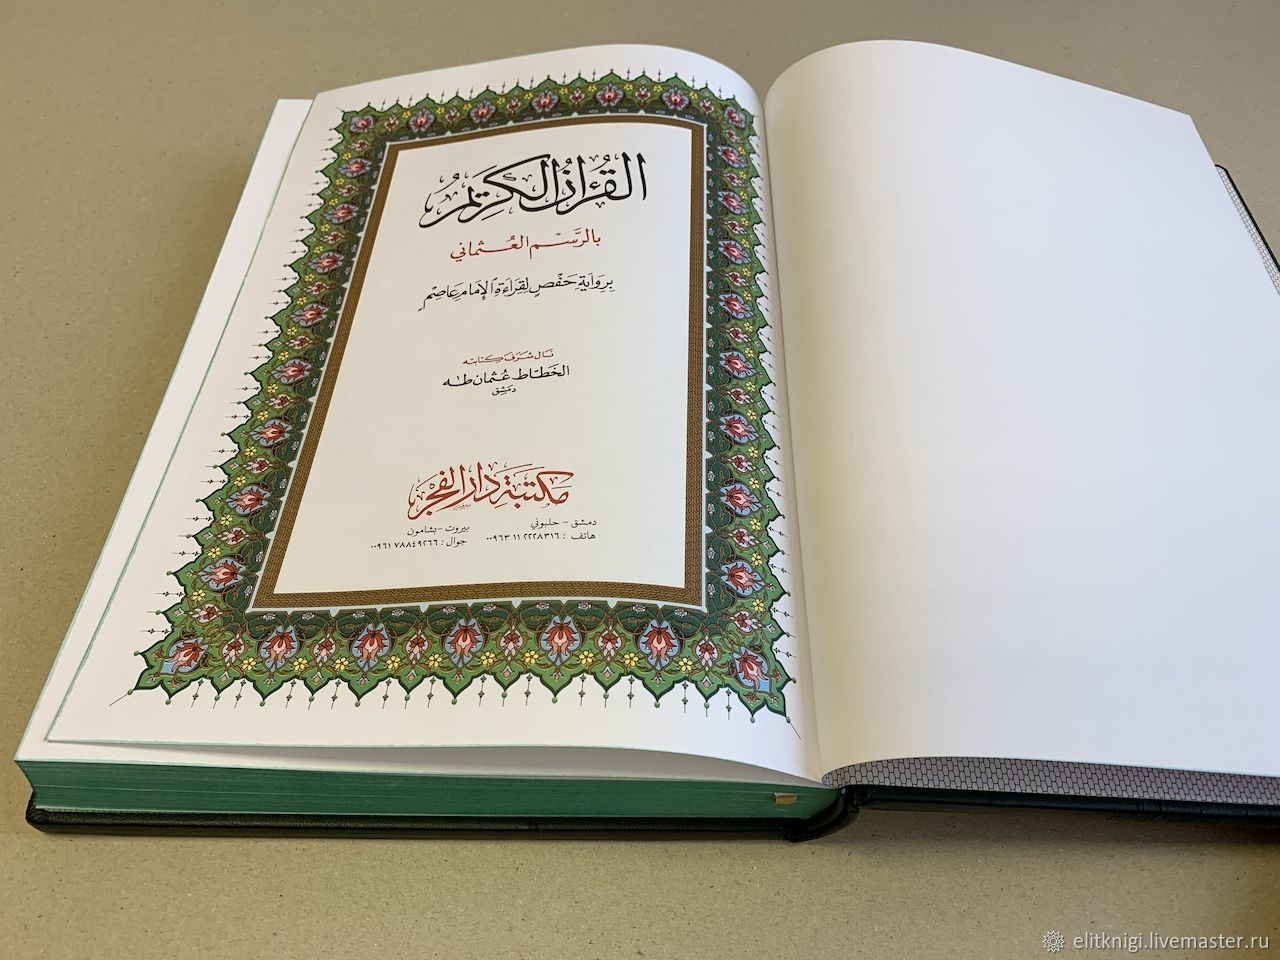 القُرْآنُ الكَرِيمُ
بالرَّسْمِ العُثماني
بِرِوَايَةِ حَفْصٍ لِقِرَاءَةِ الإِمَامِ عَاصِمٍ
نَالَ شَرَفَ كِتَابَتِهِ
الخَطَّاط عُثمان طه
دمَشق
مكتبة دار الفجر
دمشق - حلبوني
هاتف : ٠٠٩٦٣ ١١ ٢٢٢٨٣١٦
بيروت - بشامون
جوال : ٠٠٩٦١ ٧٨٨٤٩٢٦٦
elitknigi.livemaster.ru